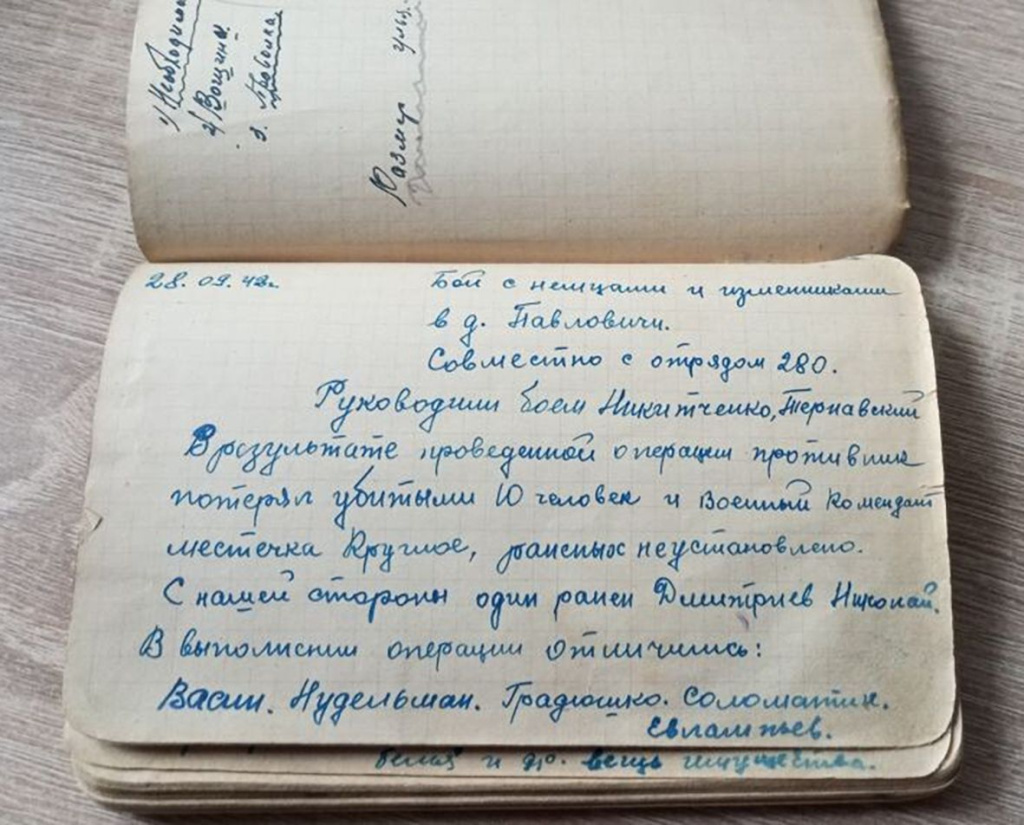 1) Необходимо
2) Вощина.
3. Проволка
Размер улья.
28.09.42г. Бой с немцами и изменниками
в д. Павловичи.
Совместно с отрядом 280.
Руководили боем Никитченко, Тернавский
В результате проведенной операции противник
потерял убитыми 10 человек и военный комендант
местечка Круглое, раненых неустановлено.
С нашей стороны один ранен Дмитриев Николай.
В выполнении операции отличились:
Васин. Нудельман. Градюшко. Соломатин.
Евлампьев.
белья и др. вещь имущества.